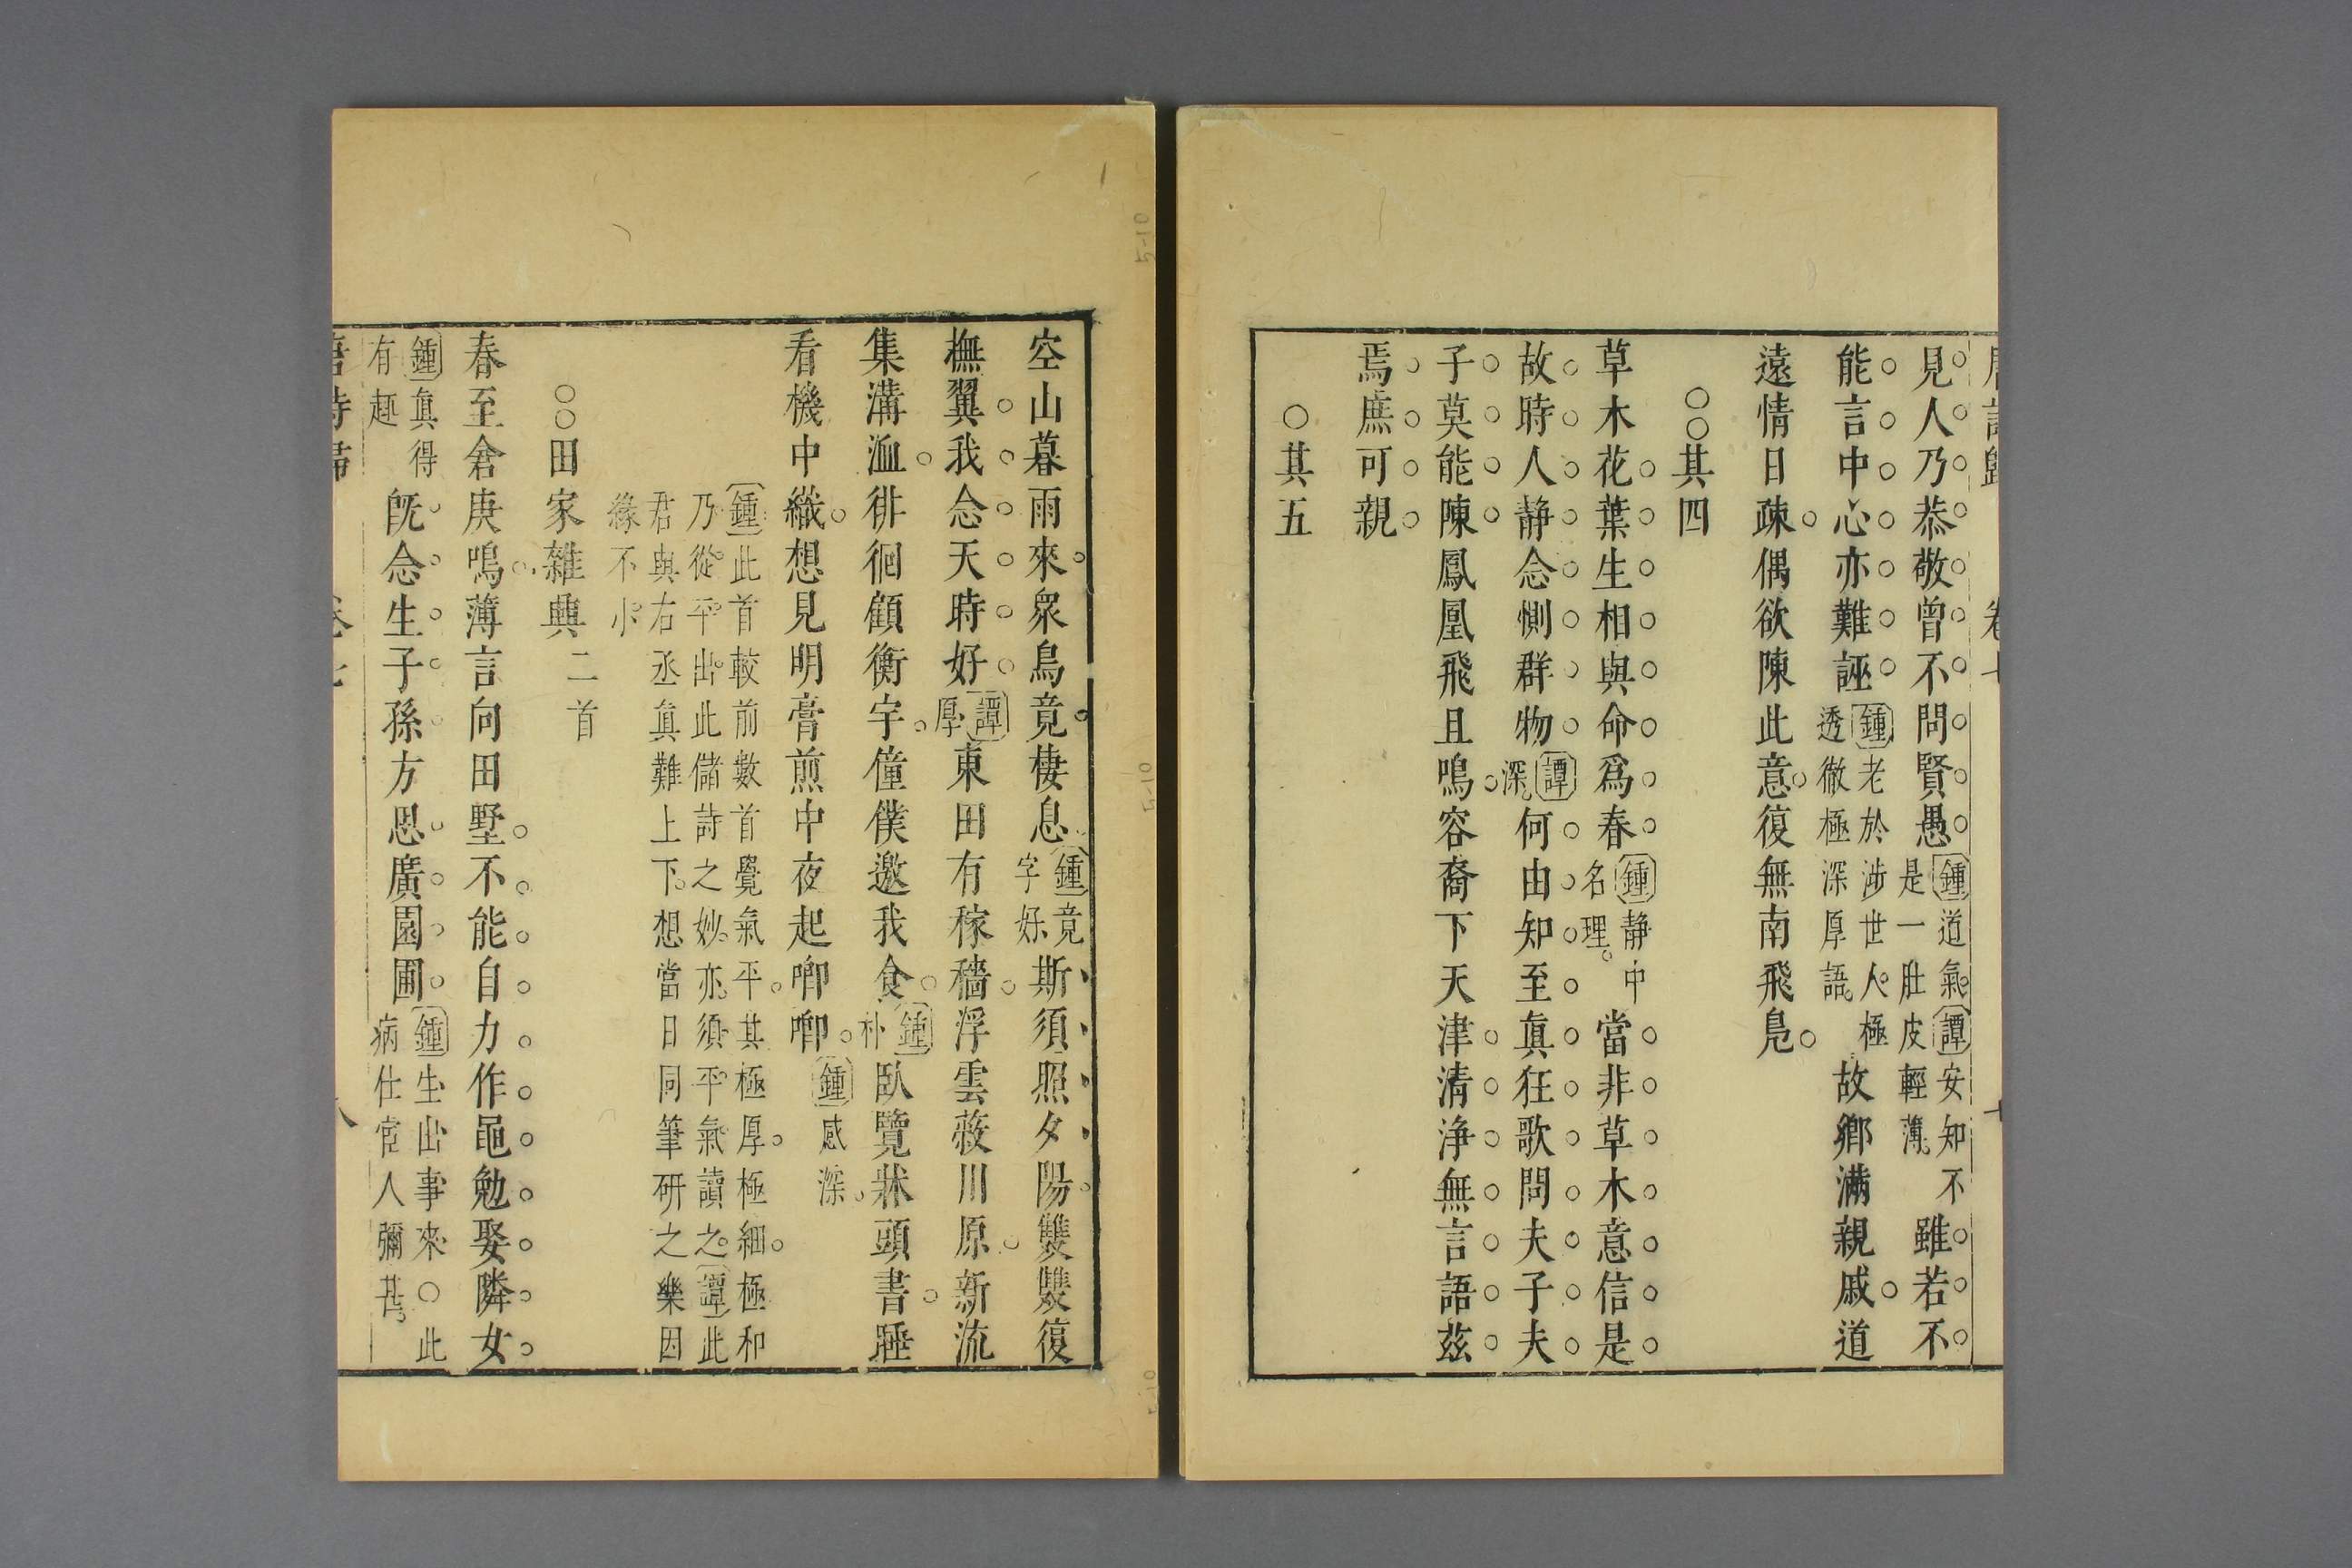 唐詩歸 卷七
見人乃恭敬曾不問賢愚 鍾 道氣 譚 安知不是一肚皮輕薄 雖若不
能言中心亦難誣 鍾 老於涉世人極透徹極深厚語 故鄉滿親戚道
遠情日疎偶欲陳此意復無南飛鳧
○○其四
草木花葉生相與命爲春 鍾 静中名理 當非草木意信是
故時人静念惻群物 譚 深 何由知至眞狂歌問夫子夫
子莫能陳鳳凰飛且鳴容裔下天津清浄無言語茲
焉庶可親
○其五
空山暮雨來衆鳥竟棲息 鍾 竟字好 斯須照夕陽雙雙復
撫翼我念天時好 譚 厚 東田有稼穡浮雲蔽川原新流
集溝洫徘徊顧衡宇僮僕邀我食 鍾 朴 臥覽牀頭書睡
看機中織想見明膏煎中夜起唧唧 鍾 感深
鍾 此首較前數首覺氣平其極厚極細極和
乃從平出此儲詩之妙亦須平氣讀之 譚 此
君與右丞眞難上下想當日同筆研之樂因
緣不小
○○田家雜興 二首
春至倉庚鳴薄言向田墅不能自力作黽勉娶隣女
鍾 眞得有趣 旣念生子孫方思廣園圃 鍾 生出事來○此病仕宦人彌甚
唐詩歸 卷七 八